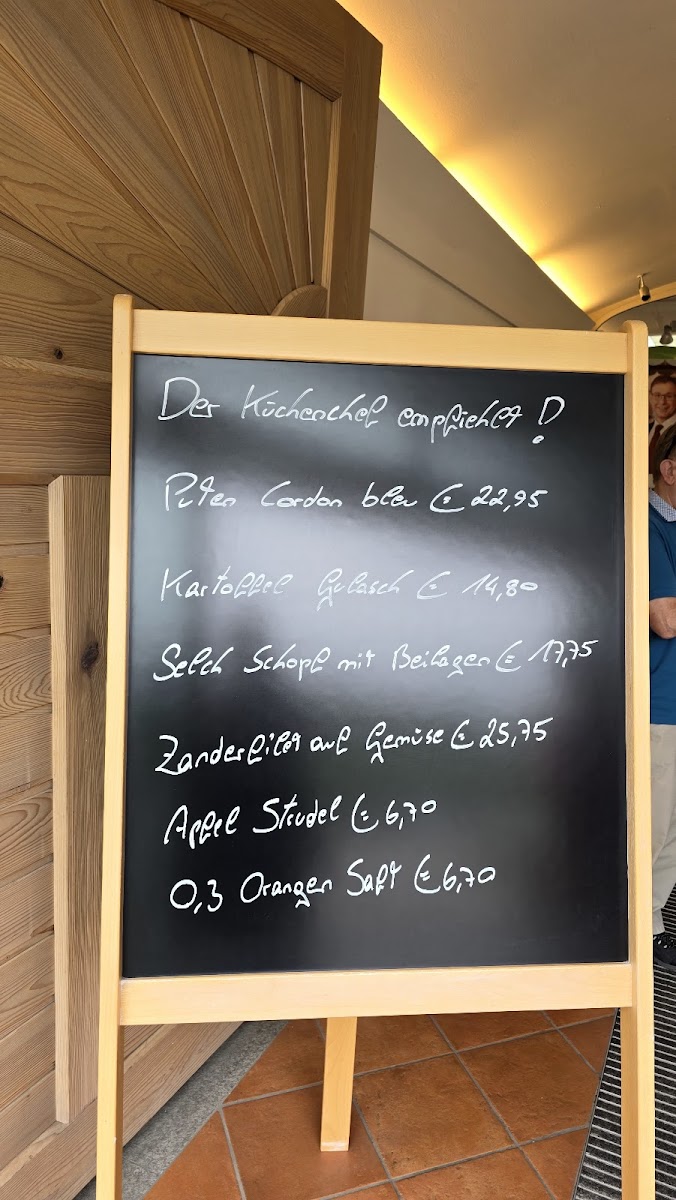 Der Küchenchef empfiehlt !
Puten Cordon bleu € 22,95
Kartoffel Gulasch € 14,80
Selch Schopf mit Beilagen € 17,75
Zanderfilet auf Gemüse € 25,75
Apfel Strudel € 6,70
0,3 Orangen Saft € 6,70